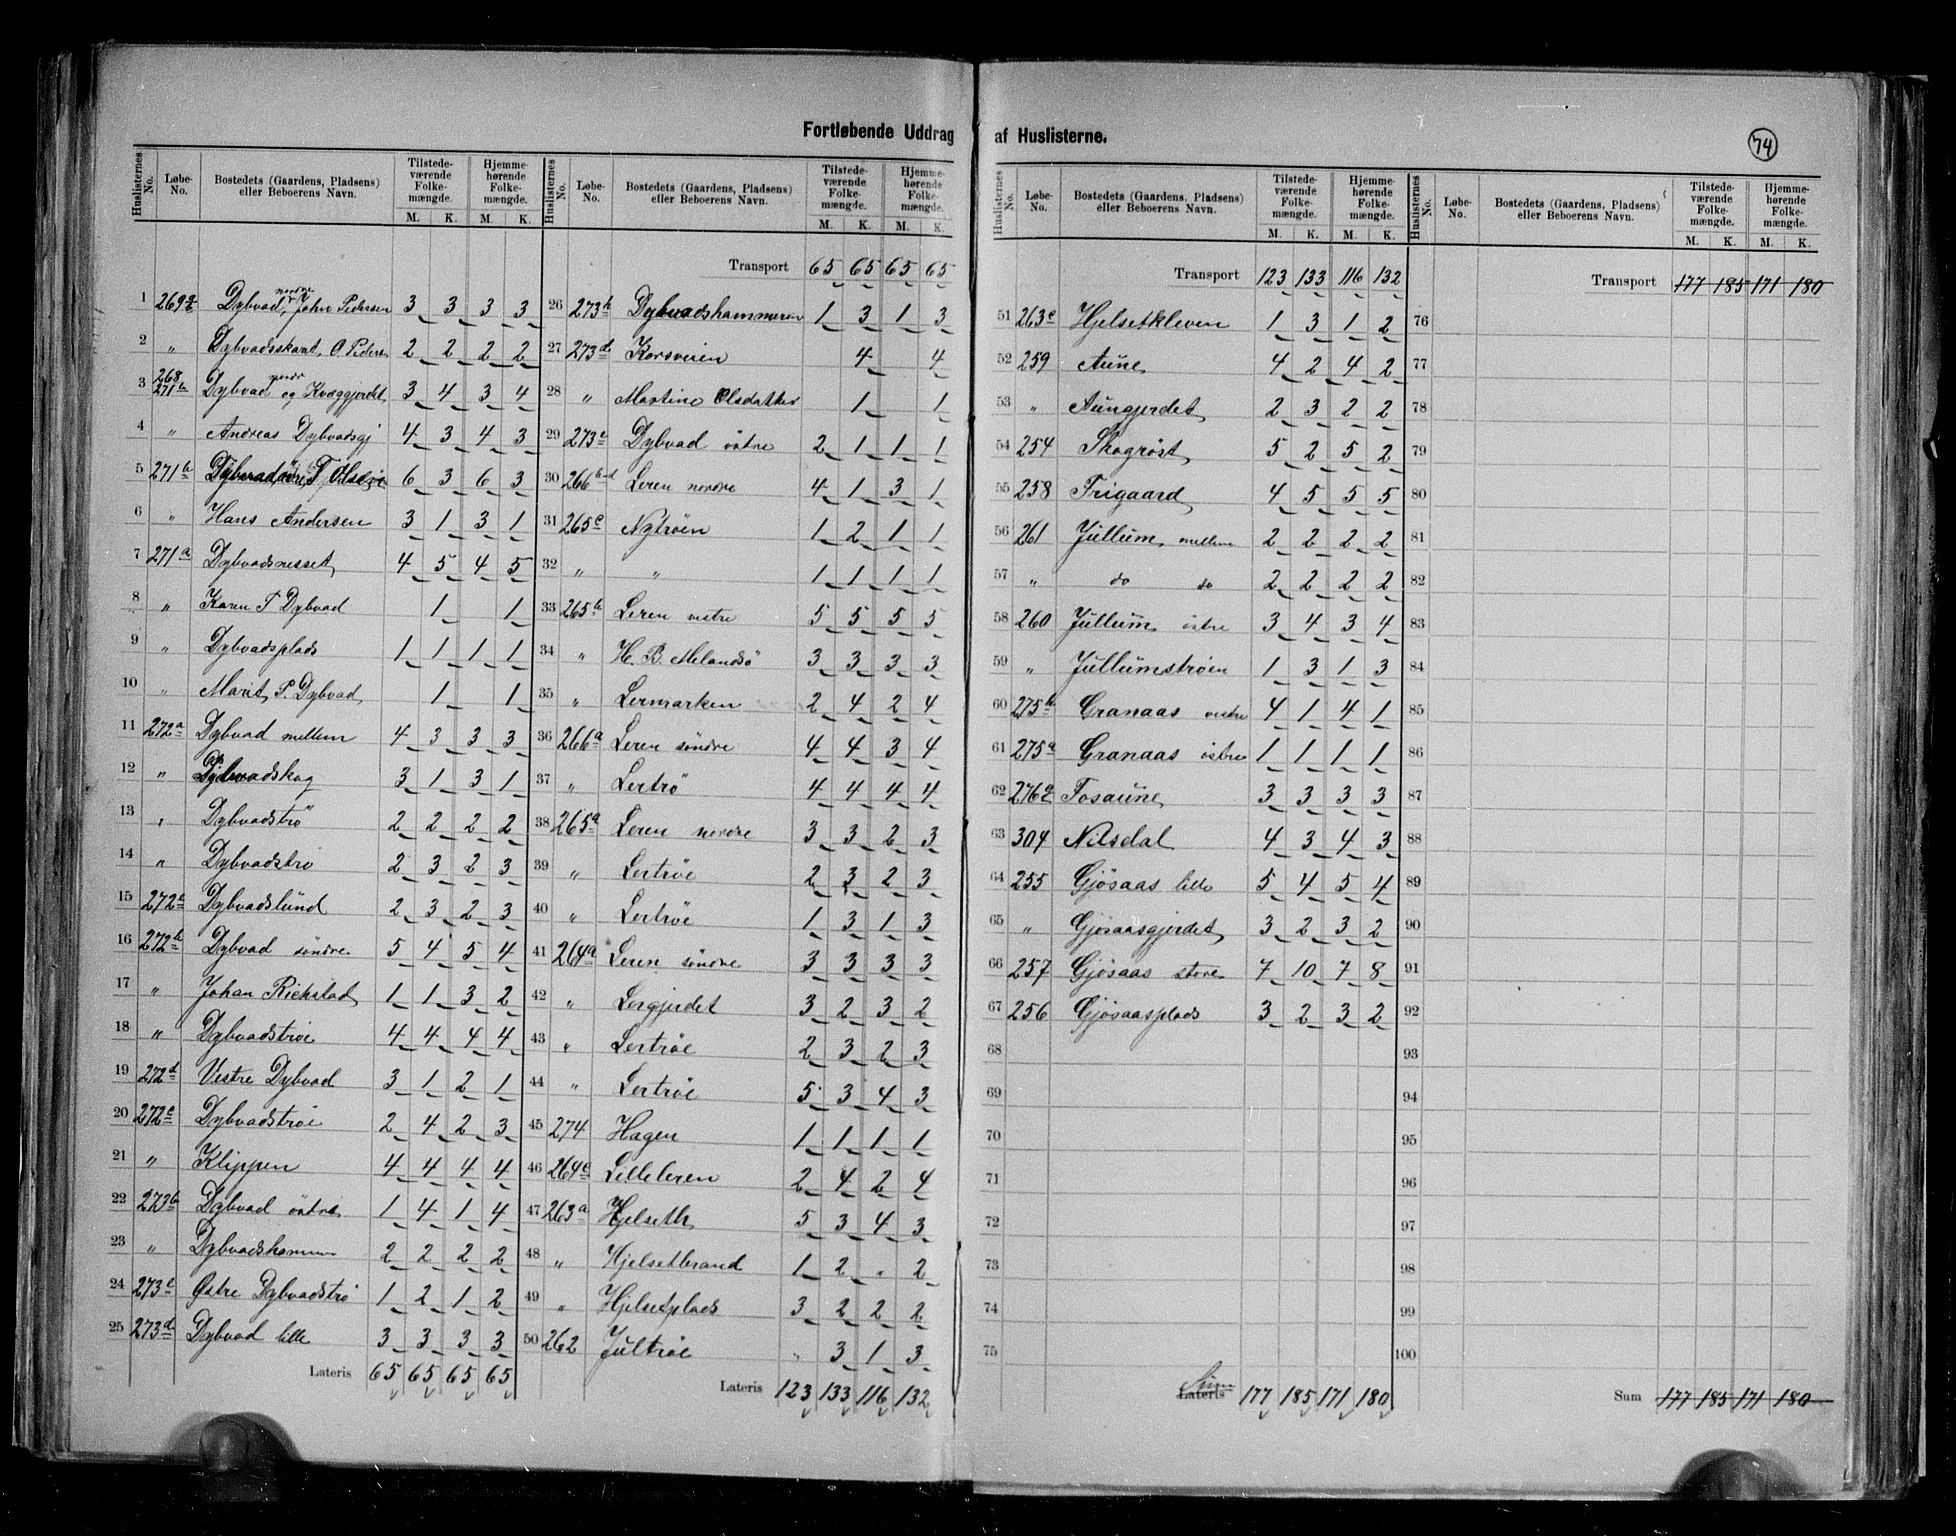 Fortløbende Uddrag af Huslisterne.
74
Huslisternes No. Løbe-No. Bostedets (Gaardens, Pladsens) eller Beboerens Navn. Tilstedeværende Folkemængde. M. K. Hjemmehørende Folkemængde. M. K.
1 269 Dybvad, nordre John Pedersen 3 3 3 3
2 " Dybvadsskant, O. Peders 2 2 2 2
3 268 271b Dybvad nordr og Kvæggjerdet 3 4 3 4
4 " Andreas Dybvadsgj 4 3 4 3
5 271b 6 3 6 3
6 " Hans Andersen 3 1 3 1
7 271a Dybvadsnesset 4 5 4 5
8 " Karen T Dybvad 1 1
9 " Dybvadsplads 1 1 1 1
10 " Marit P. Dybvad 1 1
11 272a Dybvad mellem 4 3 3 3
12 " Dybvadskog 3 1 3 1
13 " Dybvadströ 2 2 2 2
14 " Dybvadströ 2 3 2 3
15 272c Dybvadslund 2 3 2 3
16 272b Dybvad söndre 5 4 5 4
17 " Johan Rickstad 1 1 3 2
18 " Dybvadströe 4 4 4 4
19 272d Vestre Dybvad 3 1 2 1
20 272e Dybvadströe 2 4 2 3
21 " Klippen 4 4 4 4
22 273b Dybvad östre 1 4 1 4
23 " Dybvadshammer 2 2 2 2
24 273c Østre Dybvadströ 1 2 1 2
25 273d Dybvad lille 3 3 3 3
Lateris 65 65 65 65
Huslisternes No. Løbe-No. Bostedets (Gaardens, Pladsens) eller Beboerens Navn. Tilstedeværende Folkemængde. M. K. Hjemmehørende Folkemængde. M. K.
Transport 65 65 65 65
26 273b Dybvadshammeren 1 3 1 3
27 273d Korsveien 4 4
28 " Martine Olsdatter 1 1
29 273c Dybvad östre 2 1 1 1
30 266b-d Leren nordre 4 1 3 1
31 265c Nytröen 1 2 1 1
32 " " 1 1 1 1
33 265b Leren vestre 5 5 5 5
34 " H. B. Melandsö 3 3 3 3
35 " Lermarken 2 4 2 4
36 266a Leren söndre 4 4 3 4
37 " Lertrö 4 4 4 4
38 265a Leren nordre 3 3 2 3
39 " Lertröe 2 3 2 3
40 " Lertröe 1 3 1 3
41 264a Leren söndre 3 3 3 3
42 " Lergjerdet 3 2 3 2
43 " Lertröe 2 3 2 3
44 " Lertröe 5 3 4 3
45 274 Hagen 1 1 1 1
46 264c Lilleleren 2 4 2 4
47 263a Hjelseth 5 3 4 3
48 " Hjelsetbrand 1 2 " 2
49 " Hjelsetplads 3 2 2 2
50 262 Jultröe " 3 1 3
Lateris 123 133 116 132
Huslisternes No. Løbe-No. Bostedets (Gaardens, Pladsens) eller Beboerens Navn. Tilstedeværende Folkemængde. M. K. Hjemmehørende Folkemængde. M. K.
Transport 123 133 116 132
51 263c Hjelsetkleven 1 3 1 2
52 259 Aune 4 2 4 2
53 " Aungjerdet 2 3 2 2
54 254 Skogröst 5 2 5 2
55 258 Frigaard 4 5 5 5
56 261 Jullum mellem 2 2 2 2
57 " do do 2 2 2 2
58 260 Jullum östre 3 4 3 4
59 " Jullumströen 1 3 1 3
60 275b Granaas vestre 4 1 4 1
61 275a Granaas östre 1 1 1 1
62 276 Fosaune 3 3 3 3
63 304 Nilsdal 4 3 4 3
64 255 Gjösaas lille 5 4 5 4
65 " Gjösaasgjerdet 3 2 3 2
66 257 Gjösaas store 7 10 7 8
67 256 Gjösaasplads 3 2 3 2
68
69
70
71
72
73
74
75
Sum Lateris 177 185 171 180
Huslisternes No. Løbe-No. Bostedets (Gaardens, Pladsens) eller Beboerens Navn. Tilstedeværende Folkemængde. M. K. Hjemmehørende Folkemængde. M. K.
Transport 177 185 171 180
76
77
78
79
80
81
82
83
84
85
86
87
88
89
90
91
92
93
94
95
96
97
98
99
100
Sum 177 185 171 180